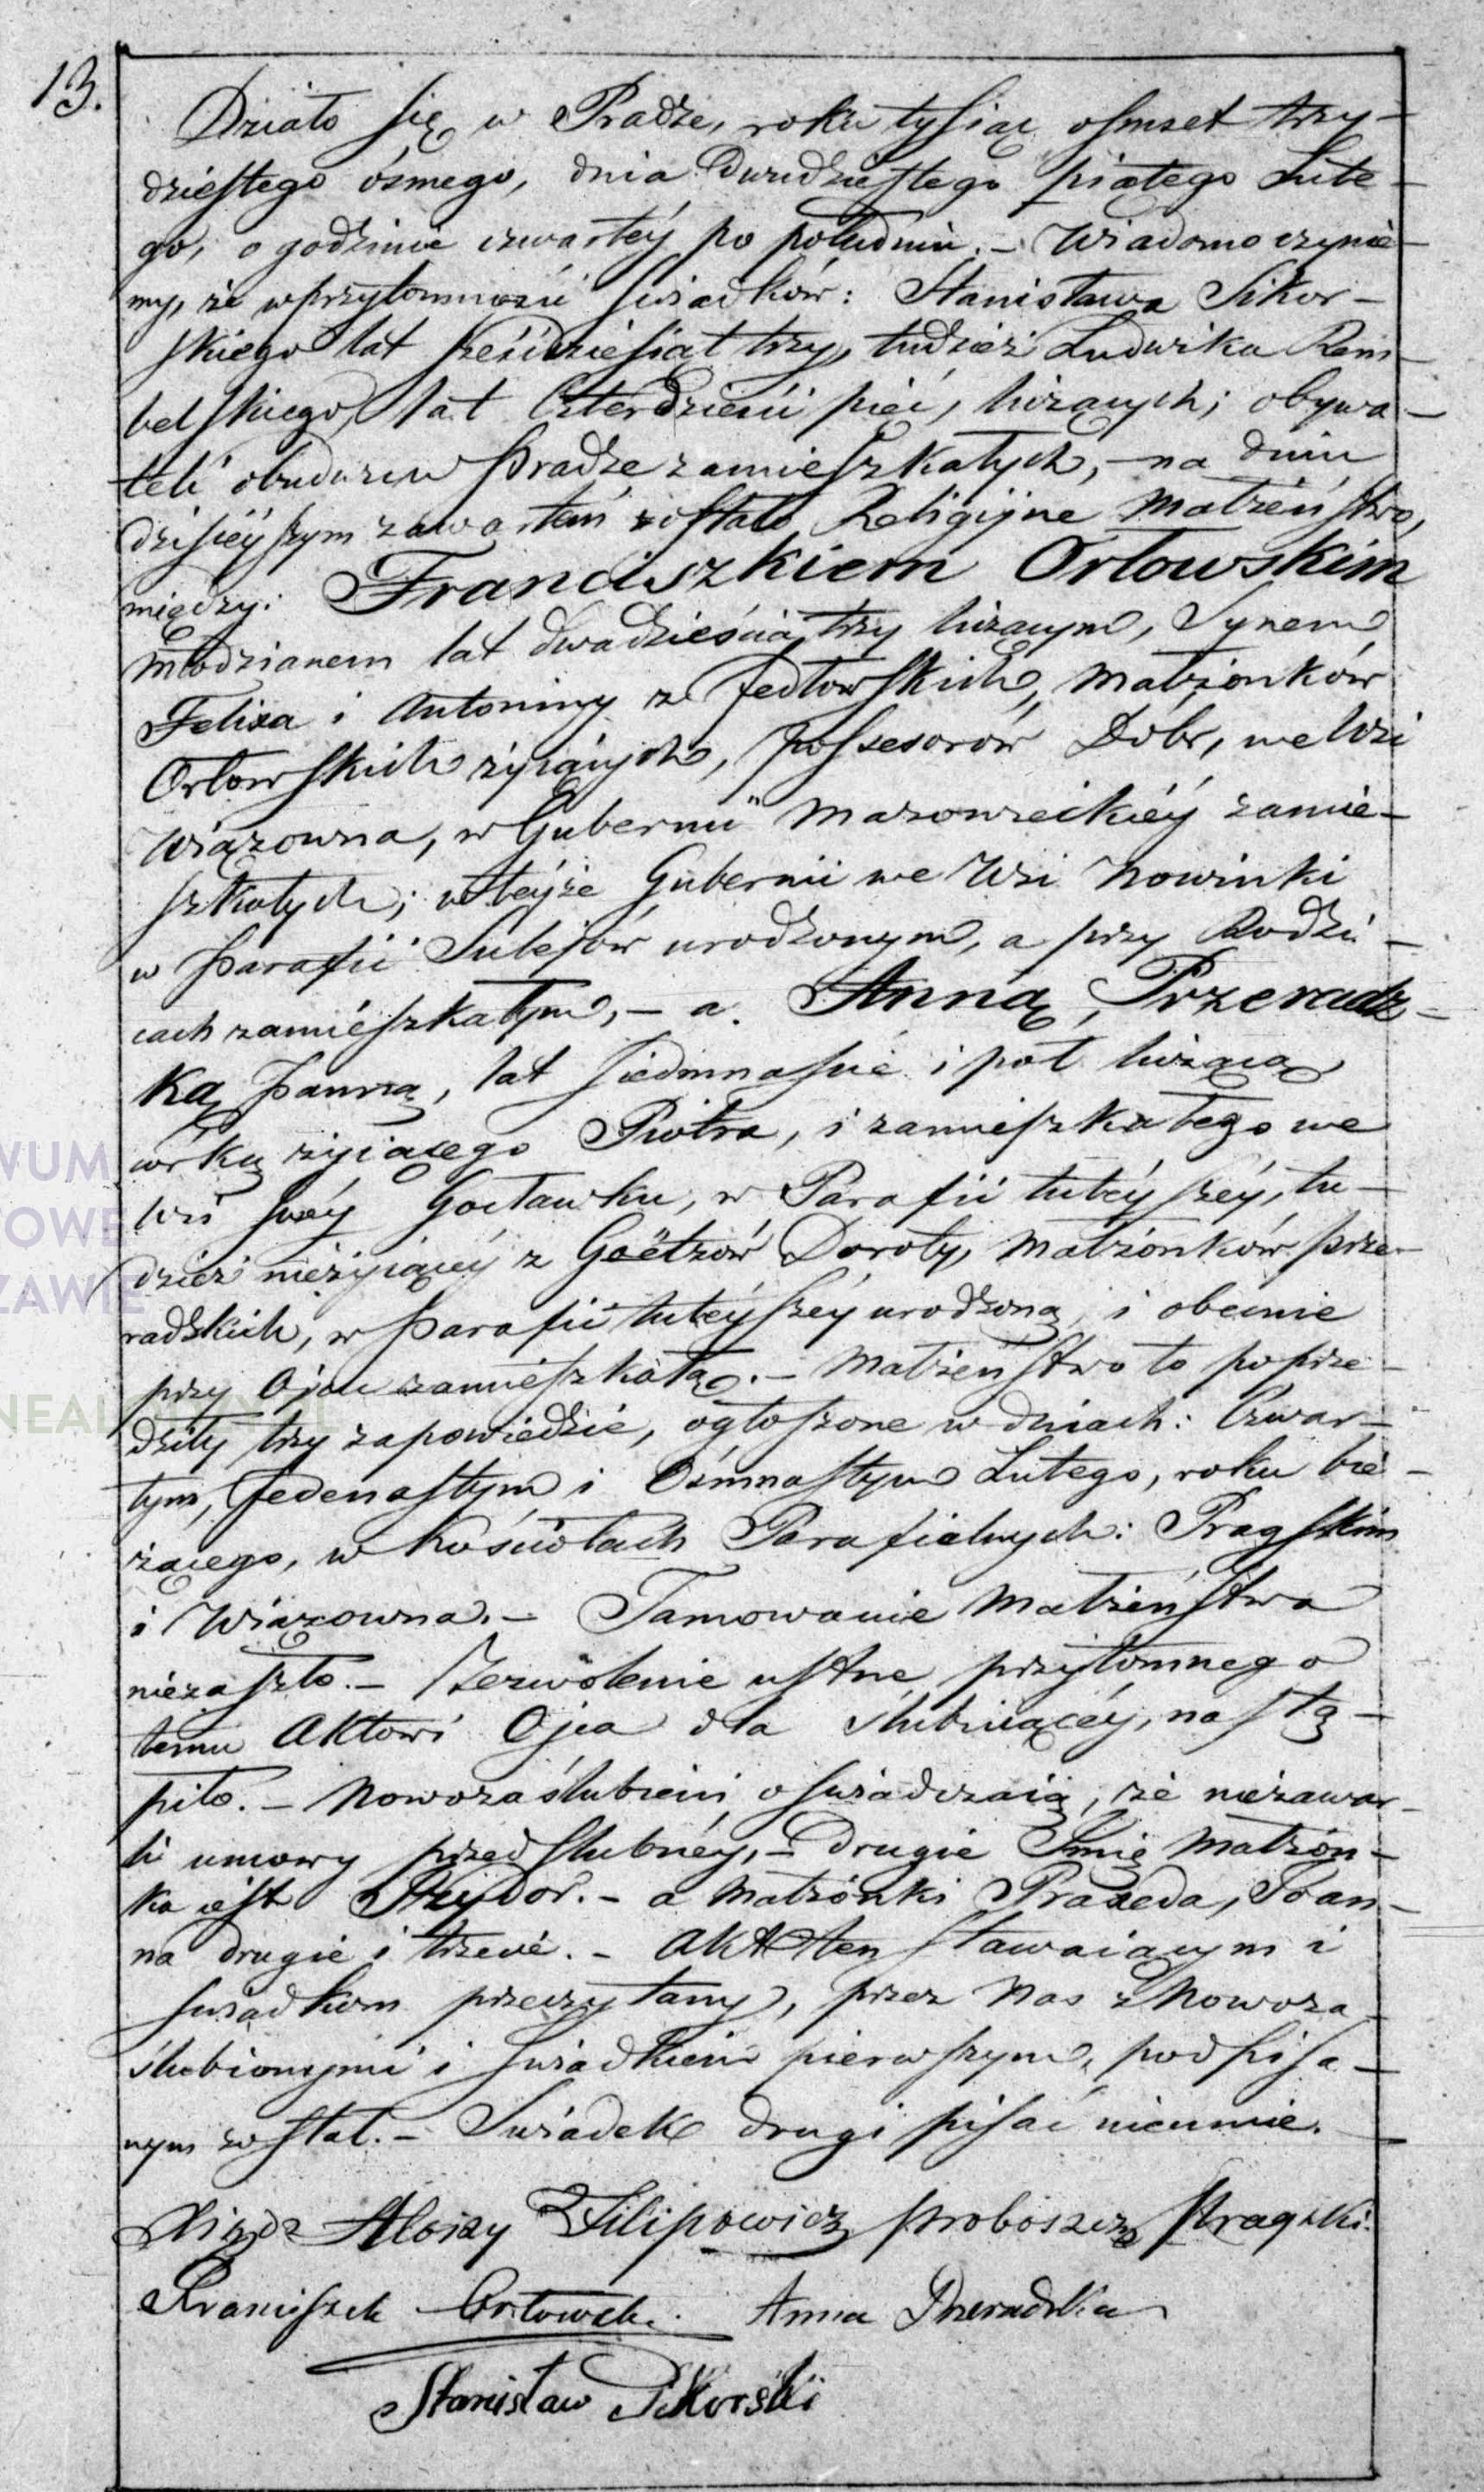 13.
Działo się w Pradze, roku tysiąc osmset trzy-
dziestego ósmego, dnia Dwudziestego piątego Lute-
go, o godzinie czwartéy po południu. – Wiadomo czynie-
my, że w przytomności świadków: Stanisława Sikor-
skiego lat sześćdziesiąt trzy, tudzież Ludwika Rem-
belskiego, lat Czterdzieści pięć, liczących; obywa-
teli obudwu w Pradze zamieszkałych, – na dniu
dzisieyszym zawartém zostało Religijne Małżeństwo,
między: Franciszkiem Orłowskim
Młodzianem lat dwadzieścia trzy liczącym, Synem
Felixa i Antoniny z Jedłowskich, Małżonków
Orłowskich żyiących, possesorów Dóbr, we Wsi
Wiązowna, w Gubernii Mazowieckiéy zamie-
szkałych; w teyże Gubernii we Wsi Nowinki
w Parafii Sulejów urodzonym, a przy Rodzi-
cach zamieszkałym, – a Anną Przeradz-
ką Panną, lat siedmnaście i pół liczącą,
córką żyiącego Piotra, i zamieszkałego we
Wsi swéy Gocławku, w Parafii tutéyszéy, tu-
dzież nieżyiącéy z Goëtzów Doroty, Małżonków Prze-
radzkich, w Parafii tutéyszéy urodzoną, i obecnie
przy Ojcu zamieszkałą. – Małżeństwo to poprze-
dziły trzy zapowiedzie, ogłoszone w dniach: Czwar-
tym, Jedenastym i Ośmnastym Lutego, roku bie-
żącego, w Kościołach Parafialnych: Pragskim
i Wiązowna. – Tamowanie Małżeństwa
niezaszło. – Zezwolenie ustne przytomnego
temu Aktowi Ojca dla ślubuiącéy, nastą-
piło. – Nowozaślubieni oświadczaią, że niezawar-
li umowy przedślubnéy, – Drugie Imię Małżon-
ka iest Izydor. – a Małżonki Praxeda, Joan-
na drugie i trzecie. – Akt ten stawaiącym i
świadkom przeczytany, przez Nas z Nowoza-
ślubionymi i świadkiem pierwszym, podpisa-
nym został. – Świadek drugi pisać nieumie.
Xiądz Aloizy Filipowicz Proboszcz Pragski.
Franciszek Orłowski. Anna Przeradzka
Stanisław Sikorski